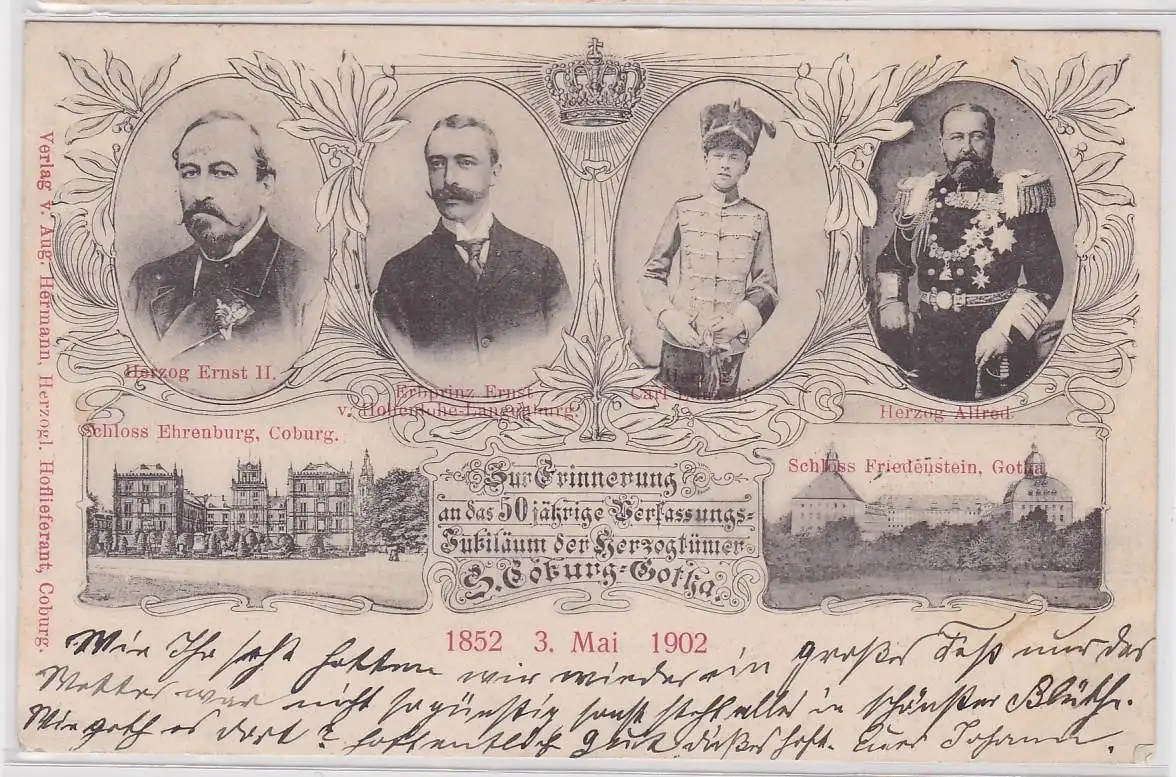 Verlag v. Aug. Hermann, Herzogl. Hoflieferant, Coburg.
Herzog Ernst II.
Erbprinz Ernst
v. Hohenlohe-Langenburg.
Herzog
Carl Eduard.
Herzog Alfred.
Schloss Ehrenburg, Coburg.
Schloss Friedenstein, Gotha
Zur Erinnerung
an das 50 jährige Verfassungs-
Jubiläum der Herzogtümer
S. Coburg-Gotha.
1852 3. Mai 1902
Wie Ihr seht hatten wir wieder ein großes Fest nur das
Wetter war nicht so günstig sonst steht alles in schönster Blüthe.
Wie geth es dort? hoffentlich gut. Euer Johann.